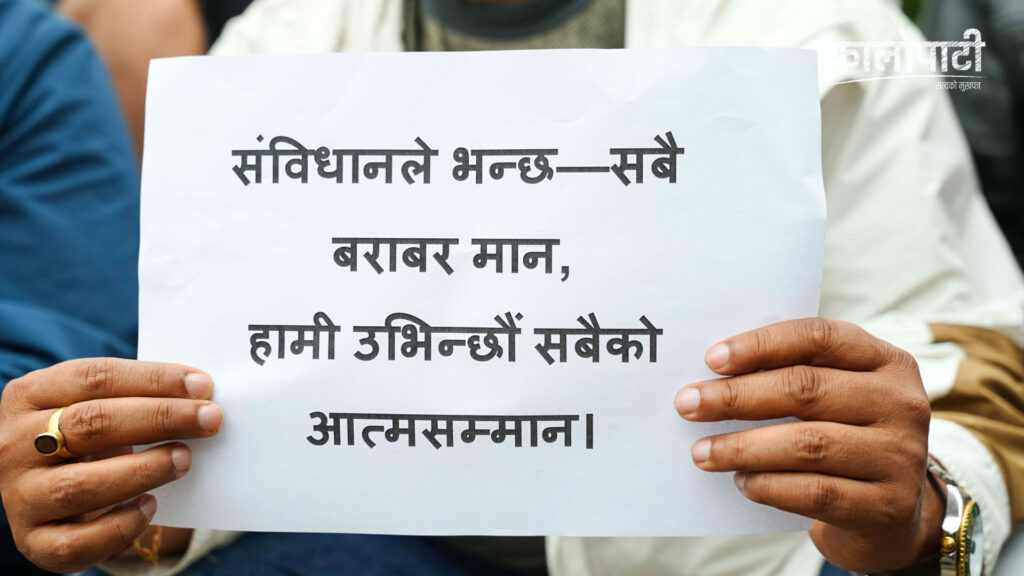 कालोपाटी
सत्यको मुखपत्र
संविधानले भन्छ—सबै
बराबर मान,
हामी उभिन्छौं सबैको
आत्मसम्मान।